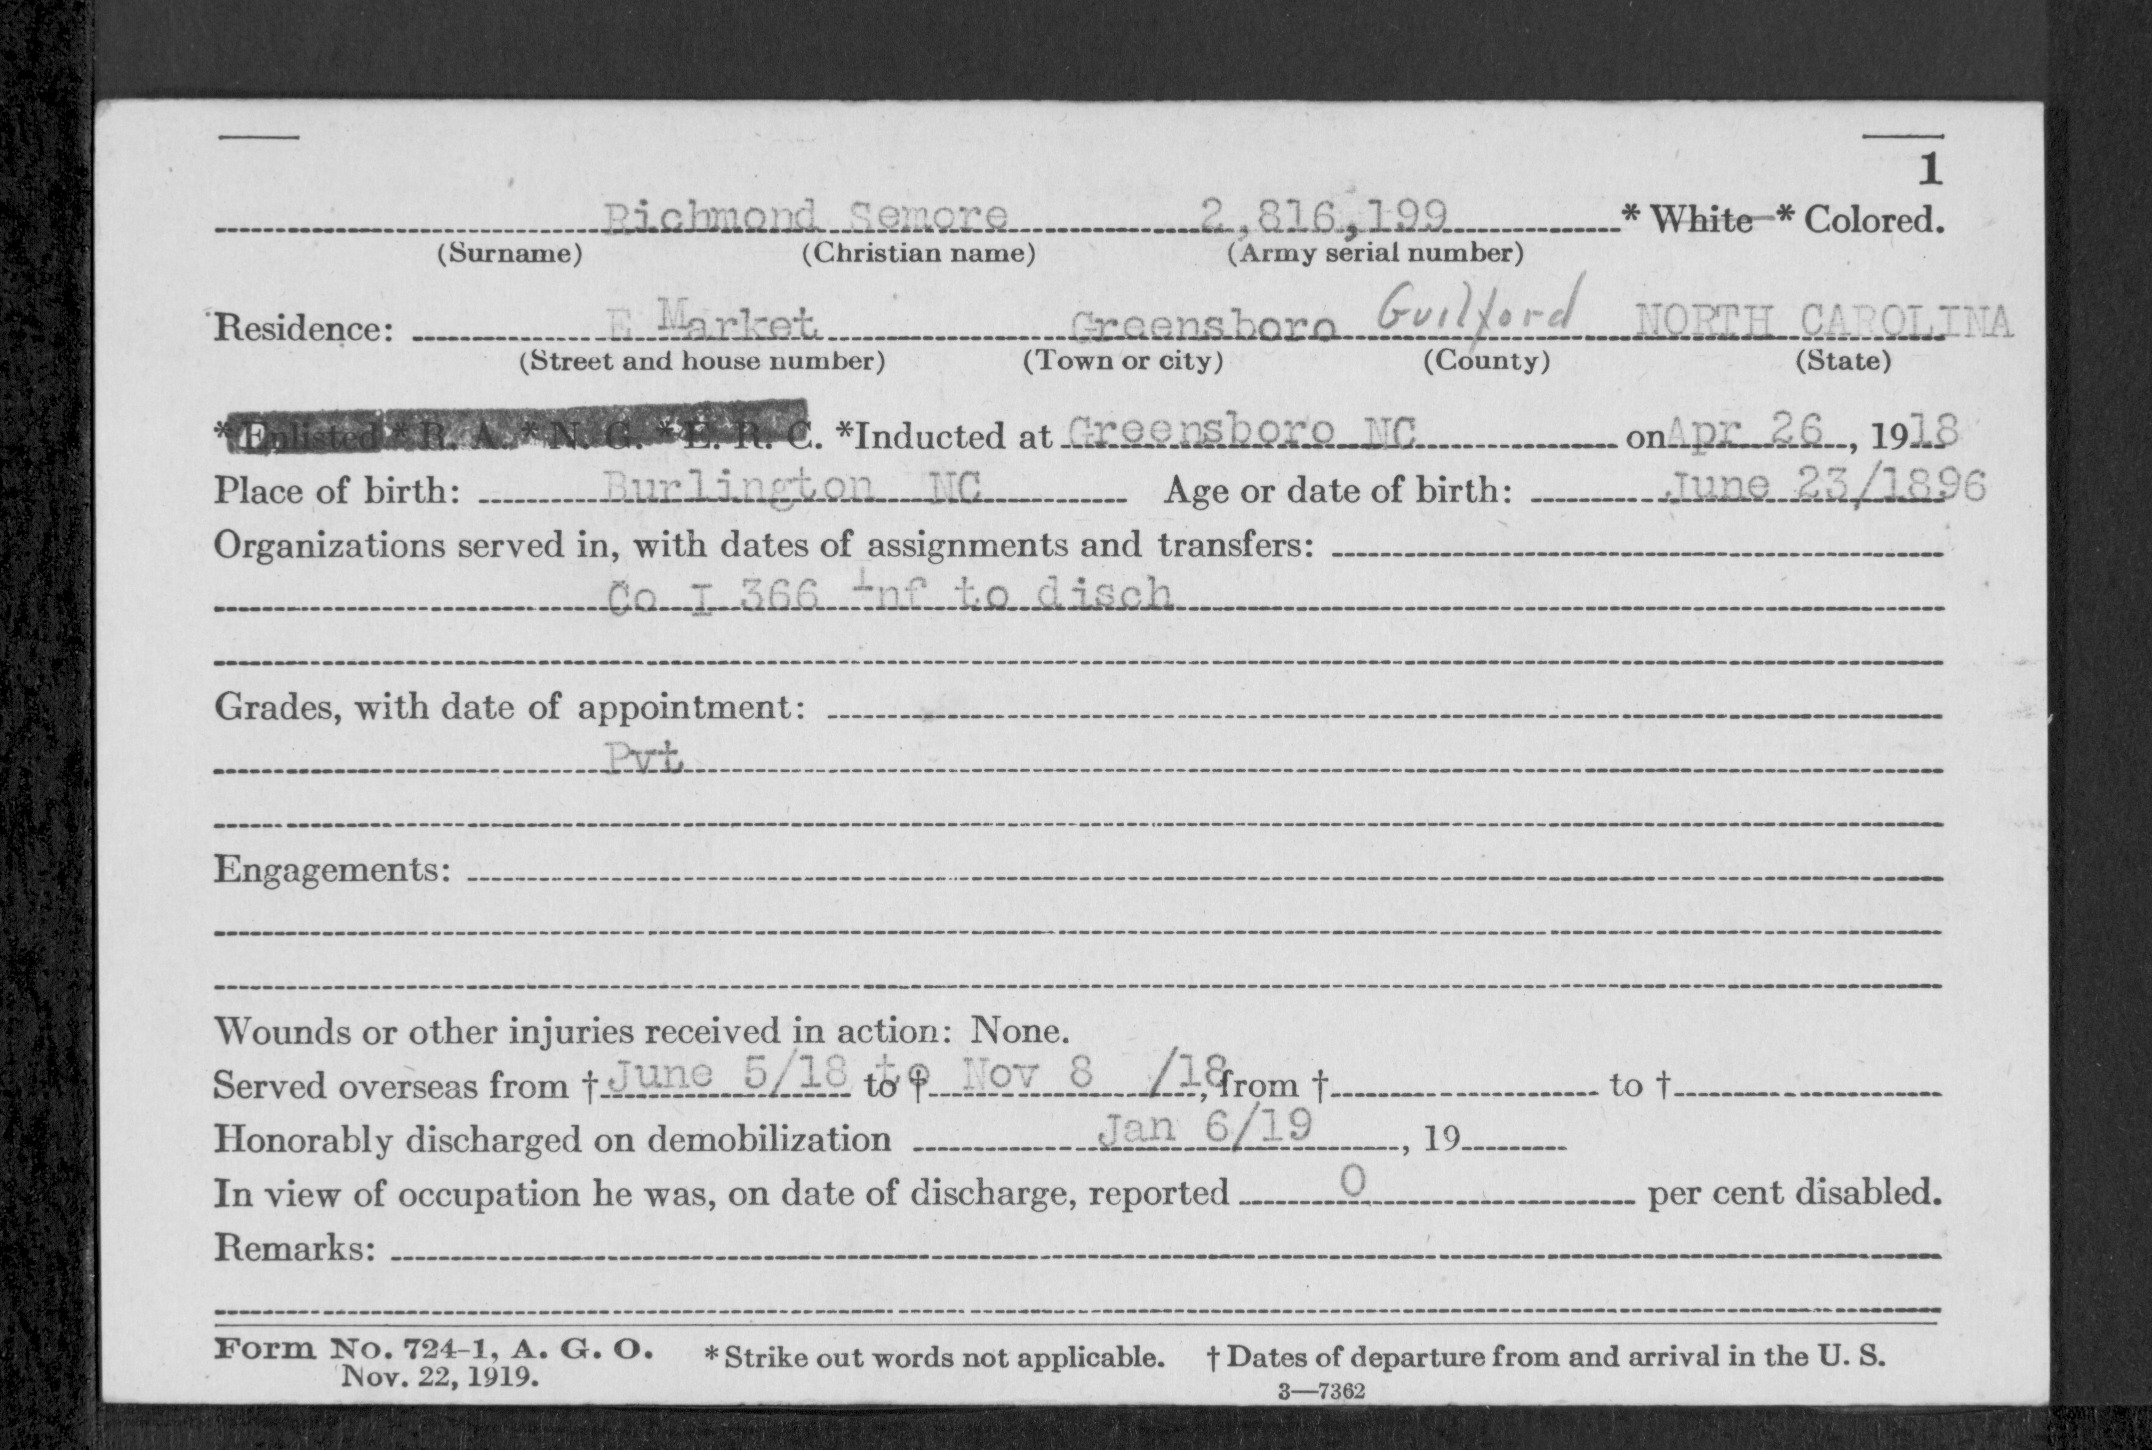 1
Richmond Semore 2,816,199 * White * Colored.
(Surname) (Christian name) (Army serial number)
Residence: E Market Greensboro Guilford NORTH CAROLINA
(Street and house number) (Town or city) (County) (State)
*Enlisted *R. A. *N. G. *E. R. C. *Inducted at Greensboro NC on Apr 26, 1918
Place of birth: Burlington NC Age or date of birth: June 23/1896
Organizations served in, with dates of assignments and transfers:
Co I 366 Inf to disch
Grades, with date of appointment:
Pvt
Engagements:
Wounds or other injuries received in action: None.
Served overseas from † June 5/18 to † to Nov 8 /18, from † to †
Honorably discharged on demobilization Jan 6/19, 19
In view of occupation he was, on date of discharge, reported 0 per cent disabled.
Remarks:
Form No. 724-1, A. G. O. *Strike out words not applicable. †Dates of departure from and arrival in the U. S.
Nov. 22, 1919. 3—7362